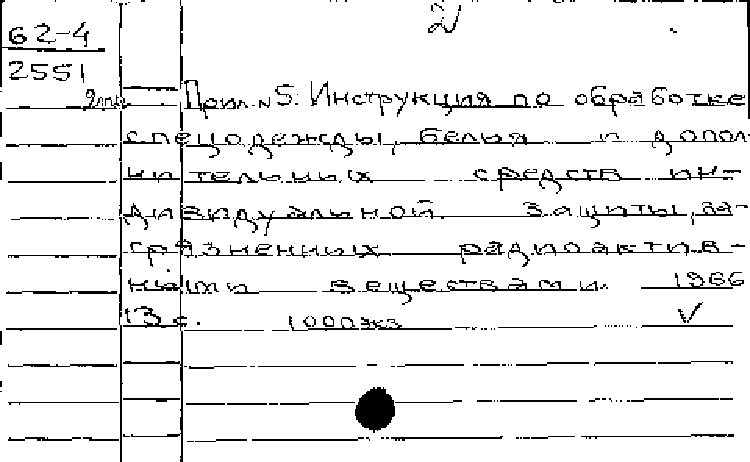 2
62-4
2551
Прил. N5: Инструкция по обработке
спецодежды, белья и допол-
нительных средств ин-
дивидуальной защиты, за-
грязненных радиоактив-
ными веществами. 1966
13 с. 1000 экз